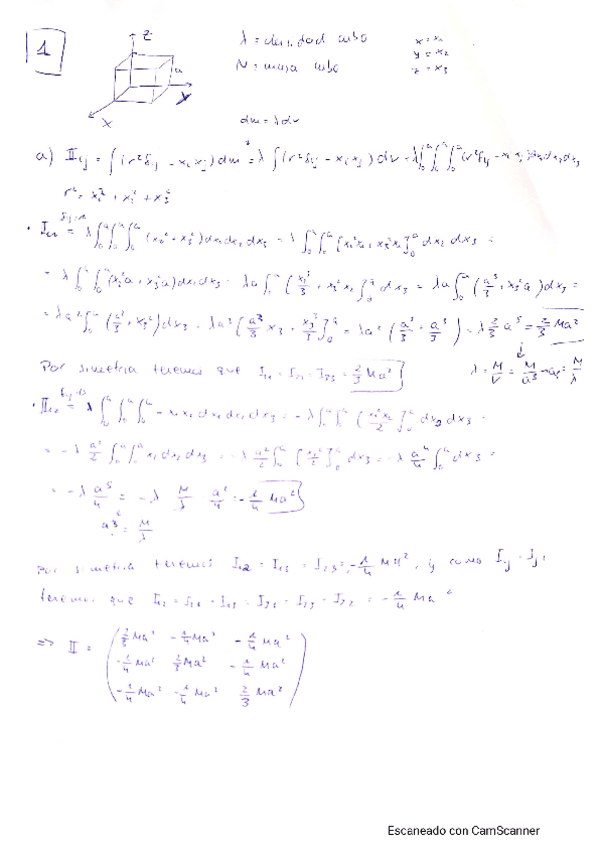 1
z
a
y
x
λ = densidad cubo
M = masa cubo
x = x₁
y = x₂
z = x₃
dm = λdv
a) II_ij = ∫(r²δ_ij - x_i x_j) dm = λ ∫(r²δ_ij - x_i x_j) dv = λ∫₀ᵃ∫₀ᵃ∫₀ᵃ (r²δ_ij - x_i x_j) dx₁dx₂dx₃
r² = x₁² + x₂² + x₃²
= λ∫₀ᵃ∫₀ᵃ∫₀ᵃ (x₂² + x₃²) dx₁ dx₂ dx₃ = λ ∫₀ᵃ∫₀ᵃ [x₂²x₁ + x₃²x₁]₀ᵃ dx₂ dx₃ =
= λ∫₀ᵃ∫₀ᵃ (x₂²a + x₃²a) dx₂ dx₃ = λa ∫₀ᵃ [x₂³/3 + x₃² x₂]₀ᵃ dx₃ = λa ∫₀ᵃ (a³/3 + x₃² a) dx₃ =
= λa² ∫₀ᵃ (a²/3 + x₃²) dx₃ = λa² [a²/3 x₃ + x₃³/3]₀ᵃ = λa² (a³/3 + a³/3) = λ 2/3 a⁵ = 2/3 Ma²
λ = M/V = M/a³ → a³ = M/λ
Por simetria tenemos que I₁₁ = I₂₂ = I₃₃ = 2/3 Ma²
= λ ∫₀ᵃ∫₀ᵃ∫₀ᵃ - x₁ x₂ dx₁ dx₂ dx₃ = - λ∫₀ᵃ∫₀ᵃ [x₁²x₂/2]₀ᵃ dx₂ dx₃ =
= - λ a²/2 ∫₀ᵃ∫₀ᵃ x₂ dx₂ dx₃ = - λ a²/2 ∫₀ᵃ [x₂²/2]₀ᵃ dx₃ = - λ a⁴/4 ∫₀ᵃ dx₃ =
= - λ a⁵/4 = - λ M/λ a²/4 = - 1/4 Ma²
a³ = M/λ
Por simetria tenemos I₁₂ = I₁₃ = I₂₃ = - 1/4 Ma², y como I_ij = I_ji
tenemos que I₁₂ = I₂₁ = I₁₃ = I₃₁ = I₂₃ = I₃₂ = - 1/4 Ma²
=> II = ( 2/3 Ma² - 1/4 Ma² - 1/4 Ma²
- 1/4 Ma² 2/3 Ma² - 1/4 Ma²
- 1/4 Ma² - 1/4 Ma² 2/3 Ma² )
Escaneado con CamScanner